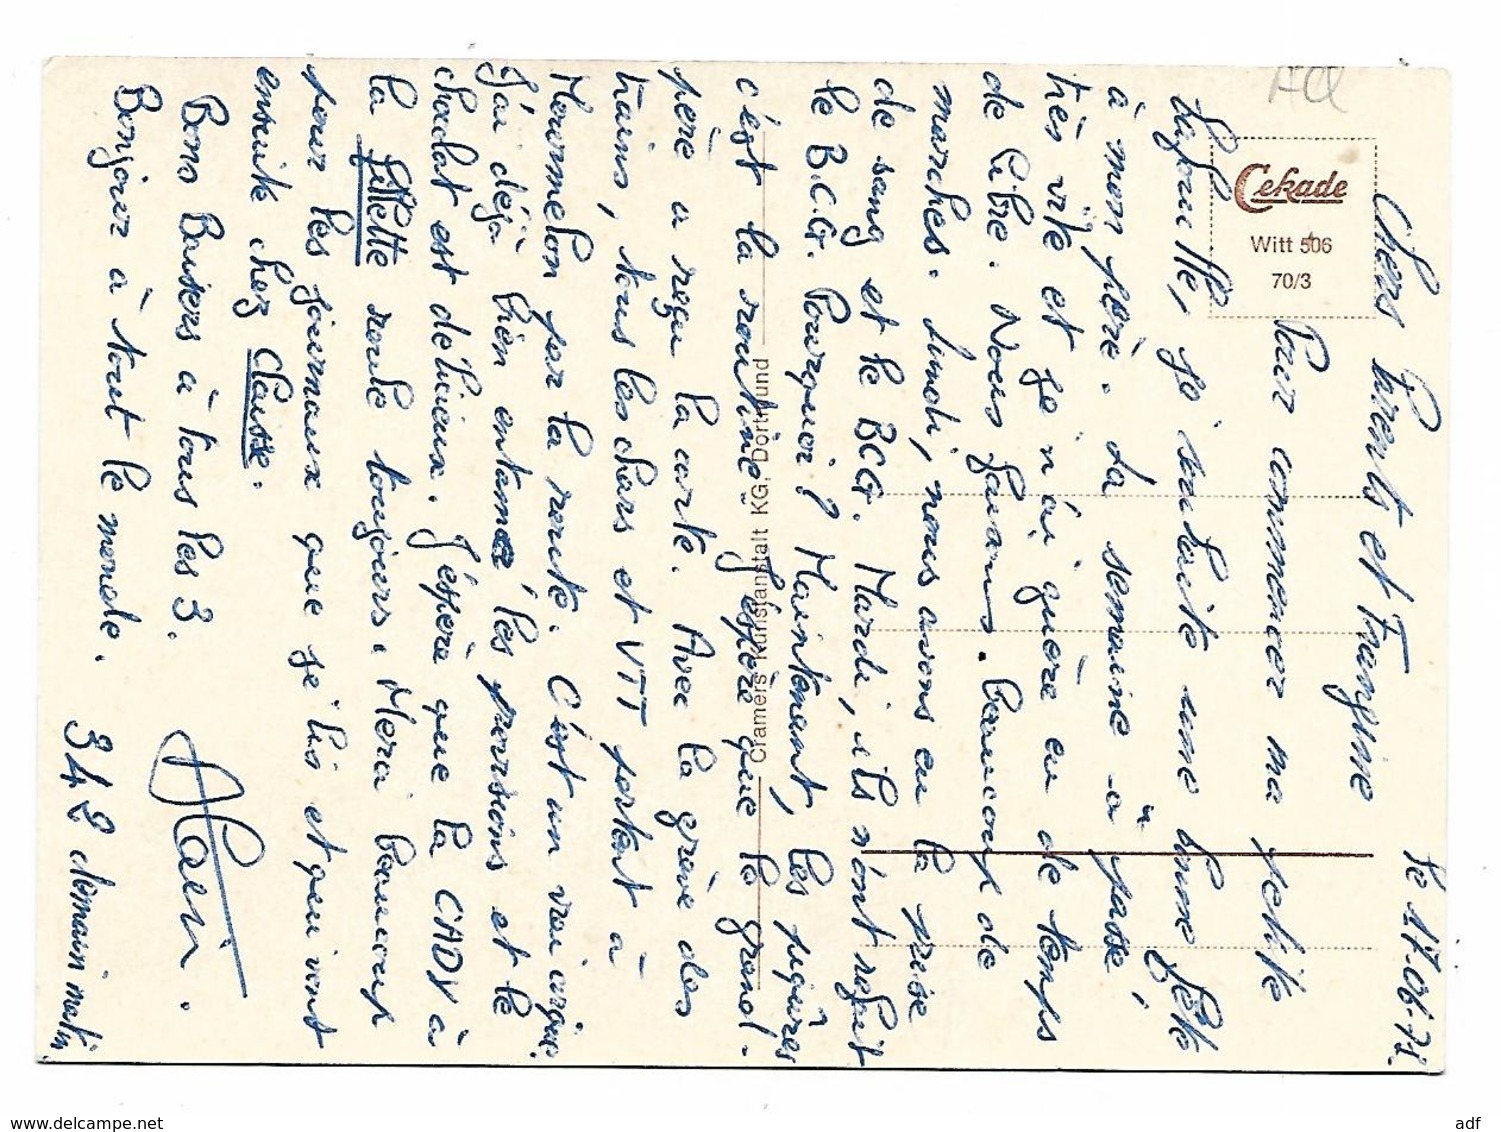 le 17-06-72.
Chers Parents et Frangine
Pour commencer ma petite
Lafouille, je souhaite une bonne fête
à mon père. La semaine a passé
très vite et je n'ai guère eu de temps
de libre. Nous faisons beaucoup de
marches. Lundi, nous avons eu la prise
de sang et le BCG. Mardi, ils m'ont refait
le B.C.G. Pourquoi ? Maintenant, les piqûres
c'est la routine. J'espère que le grand-
père a reçu la carte. Avec la grève des
trains, tous les chars et VTT partent à
Mourmelon par la route. C'est un vrai cirque.
J'ai déjà bien entamé les provisions et le
chocolat est délicieux. J'espère que la CADY à
la fillette roule toujours. Merci beaucoup
pour les journaux que je lis et qui vont
ensuite chez Clausse.
Bons Baisers à tous les 3.
Bonjour à tout le monde.
Alain.
342 demain matin
Cekade
Witt 506
70/3
Cramers Kunstanstalt KG, Dortmund
www.delcampe.net
adf